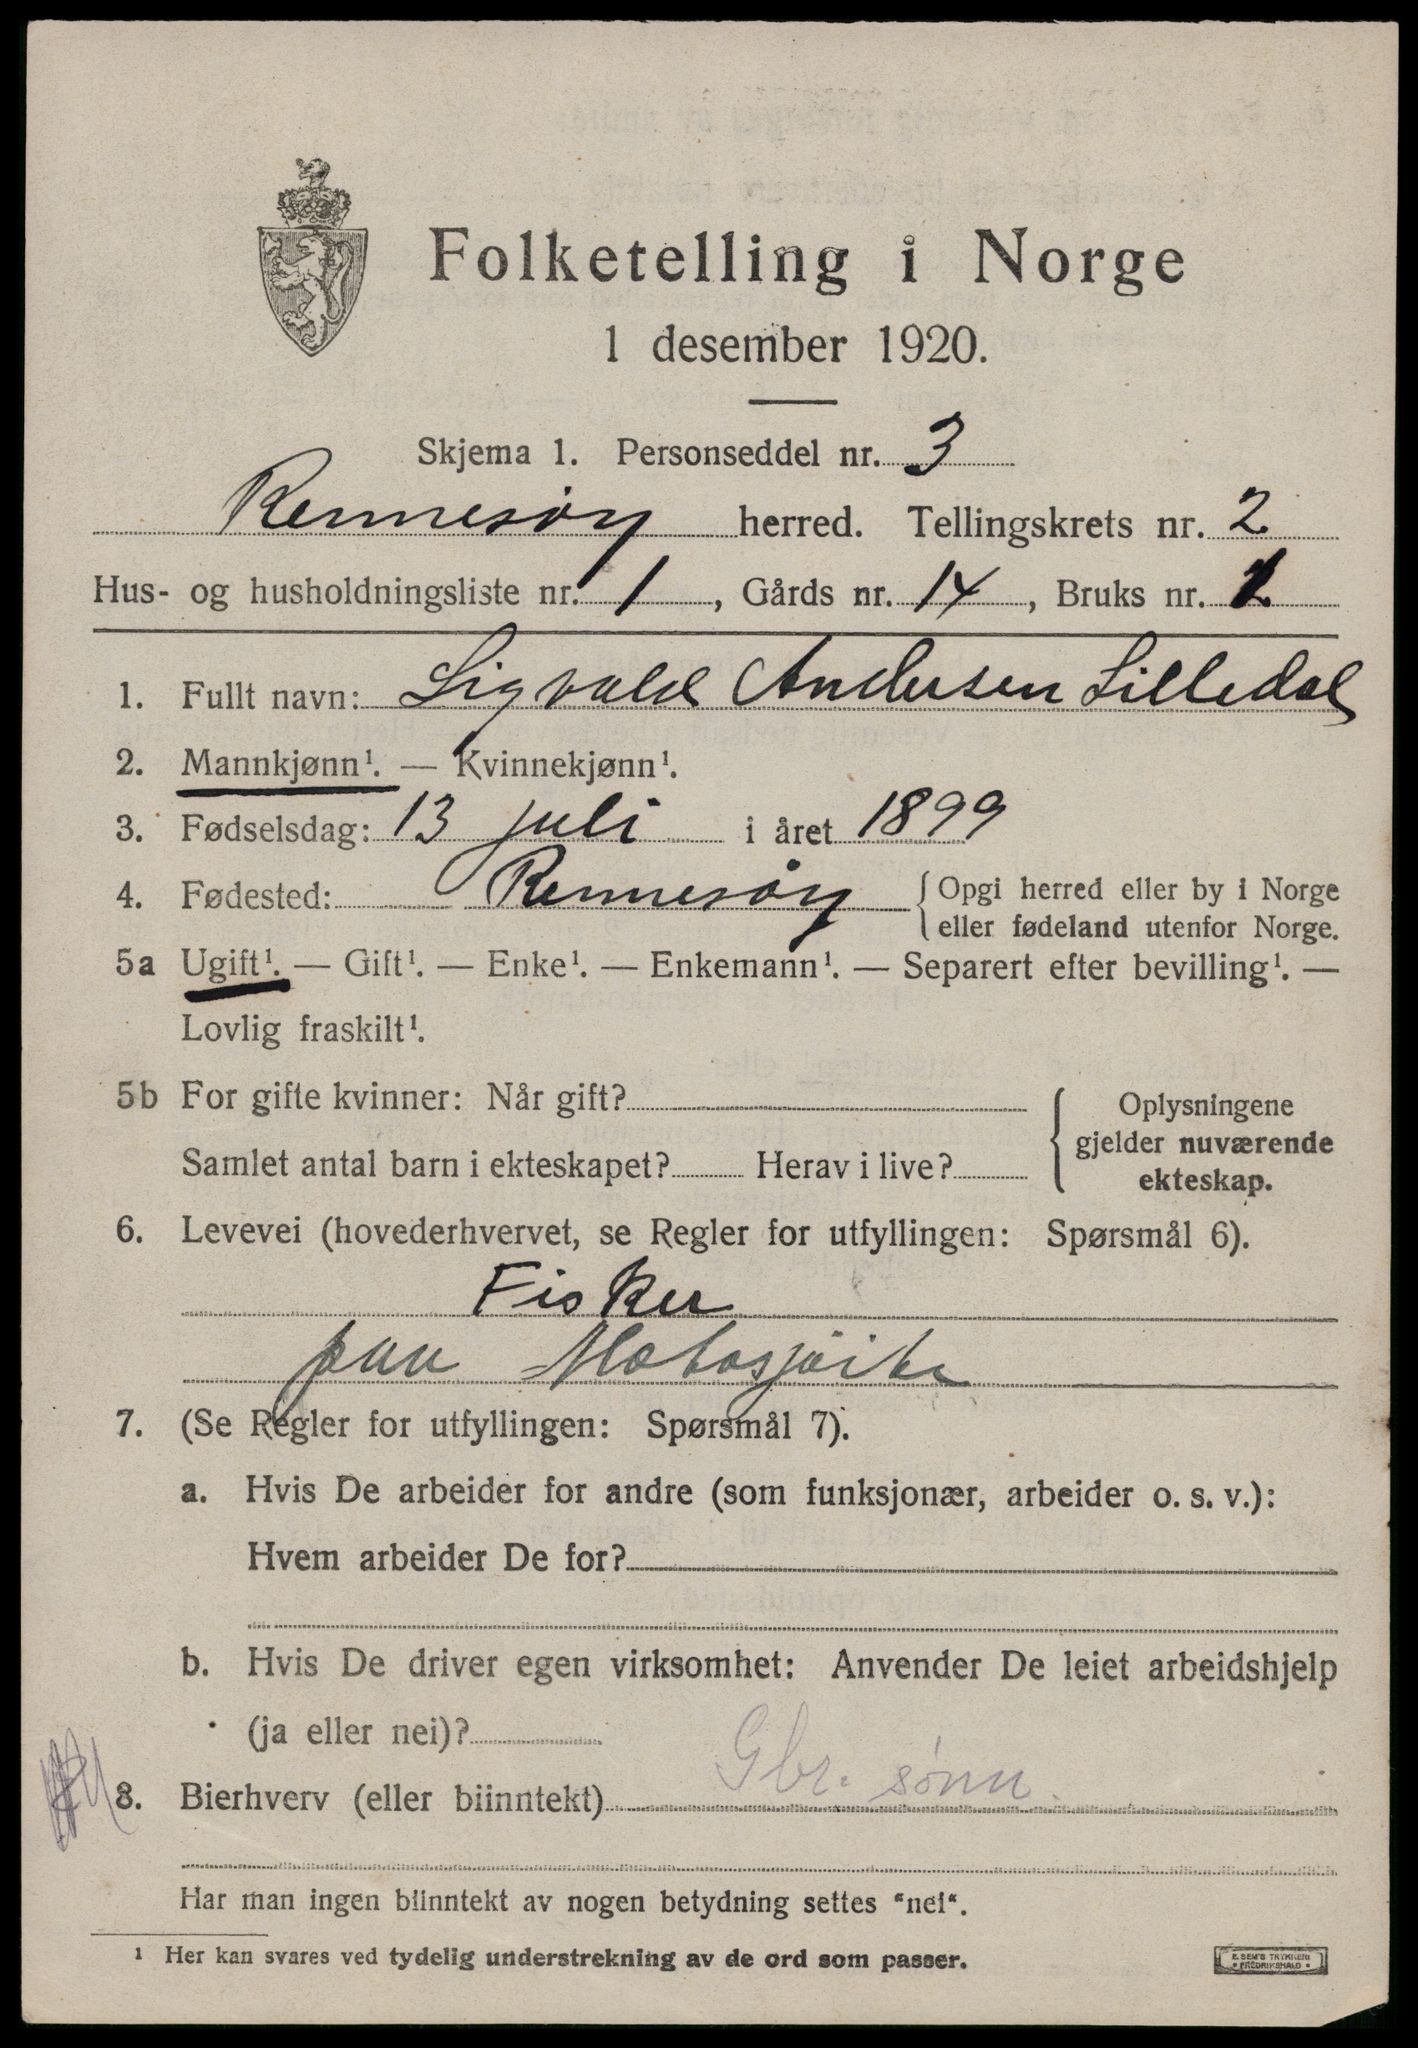 Folketelling i Norge
1 desember 1920.
Skjema 1. Personseddel nr. 3
Rennesøy herred. Tellingskrets nr. 2
Hus- og husholdningsliste nr. 1, Gårds nr. 14, Bruks nr. 1
1. Fullt navn: Sigvald Andersen Lilledal
2. Mannkjønn¹. — Kvinnekjønn¹.
3. Fødselsdag: 13 juli i året 1899
4. Fødested: Rennesøy { Opgi herred eller by i Norge
eller fødeland utenfor Norge.
5a Ugift¹. — Gift¹. — Enke¹. — Enkemann¹. — Separert efter bevilling¹. —
Lovlig fraskilt¹.
5b For gifte kvinner: Når gift?
Samlet antal barn i ekteskapet? Herav i live?
{ Oplysningene
gjelder nuværende
ekteskap.
6. Levevei (hovederhvervet, se Regler for utfyllingen: Spørsmål 6).
Fisker
paa
7. (Se Regler for utfyllingen: Spørsmål 7).
a. Hvis De arbeider for andre (som funksjonær, arbeider o. s. v.):
Hvem arbeider De for?
b. Hvis De driver egen virksomhet: Anvender De leiet arbeidshjelp
(ja eller nei)?
Gbr. sønn.
8. Bierhverv (eller biinntekt)
Har man ingen biinntekt av nogen betydning settes "nei".
¹ Her kan svares ved tydelig understrekning av de ord som passer.
E. SEM'S TRYKKERI
FREDRIKSHALD